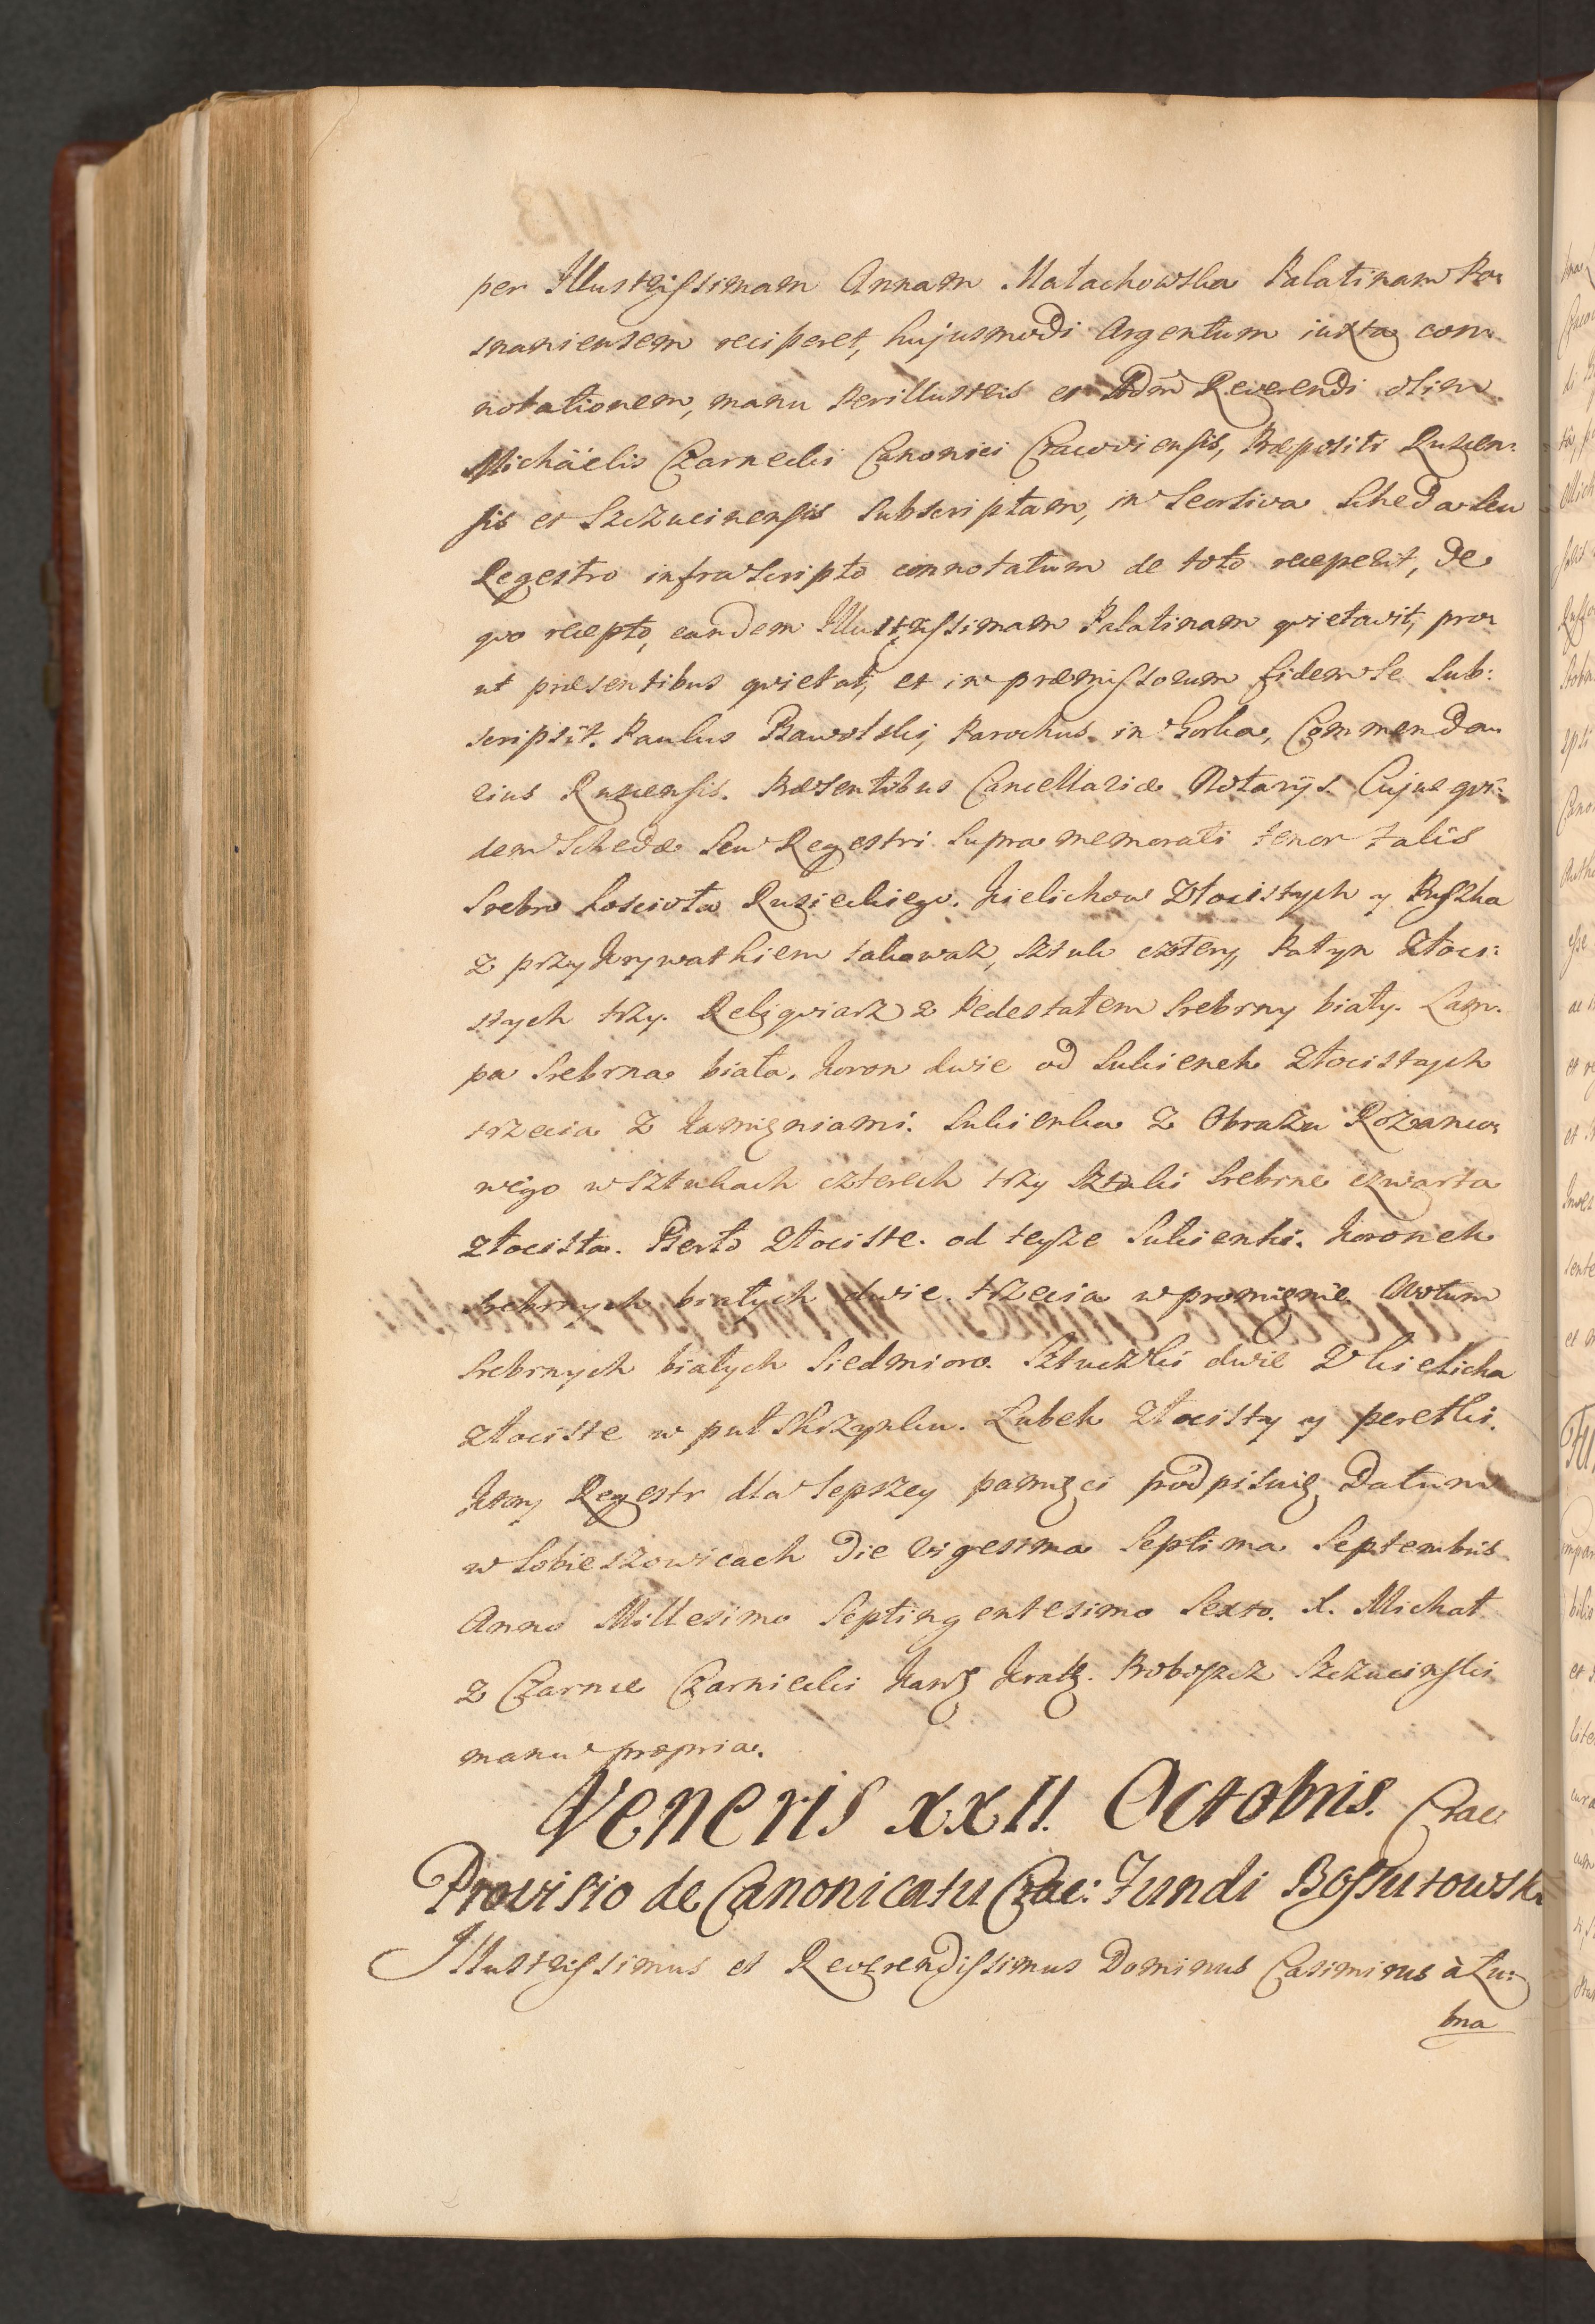 per Illustrissimam Annam Małachowska Palatinam Po:
snaniensem reciperet, hujusmodi Argentum iuxta con:
notationem, manu Perillustris et Adm Reverendi olim
Michäelis Czarnecki Canonici Cracoviensis, Præpositi Ruscen:
sis et Szczucinensis subscriptam, in seorsiva Scheda seu
Regestro infrascripto connotatum de toto reciperet, de
quo recepto, eandem Illustrissimam Palatinam quietavit, pro:
ut præsentibus quietat, et in præmissorum fidem se sub:
scripsit. Paulus Bawolski, Parochus in Gorka, Commenda:
rius Ruscensis. Præsentibus Cancellariæ Notarijs. Cujus qui:
dem Schedæ seu Regestri supra memorati tenor talis
Srebro Koscioła Rusieckiego. Kielichow złocistych y Puszka
z przykrywatkiem takowaz, sztuk cztery, Patyn złoci:
stych trzy. Reliquiarz z Pedestałem srebrny biały. Lam:
pa srebrna biała. Koron dwie od sukienek złocistych
trzecia z kamięniami. Sukienka z Obrazu Rozanco:
wego w sztukach czterech trzy sztuki srebrne czwarta
złocista. Berło złociste od teyże sukienki. Koronek
srebrnych białych dwie trzecia w promięnie Wotum
srebrnych białych siedmioro. Sztuczki dwie z kielicha
złociste w puł skrzynku. Łubek złocisty y perełki.
Ktory Regestr dla lepszey pamięci podpisuię Datum
w Sobieszowicach Die vigesima septima Septembris
Anno Millesimo Septingentesimo Sexto. X. Michał
z Czarnce Czarniecki Kan: Krak: Proboszcz Szczucinski
manu propria.
Veneris XXII. Octobris. Crac:
Provisio de Canonicatu Crac: Fundi Bossutowski
Illustrissimus et Reverendissimus Dominus Casimirus à Łu:
bna